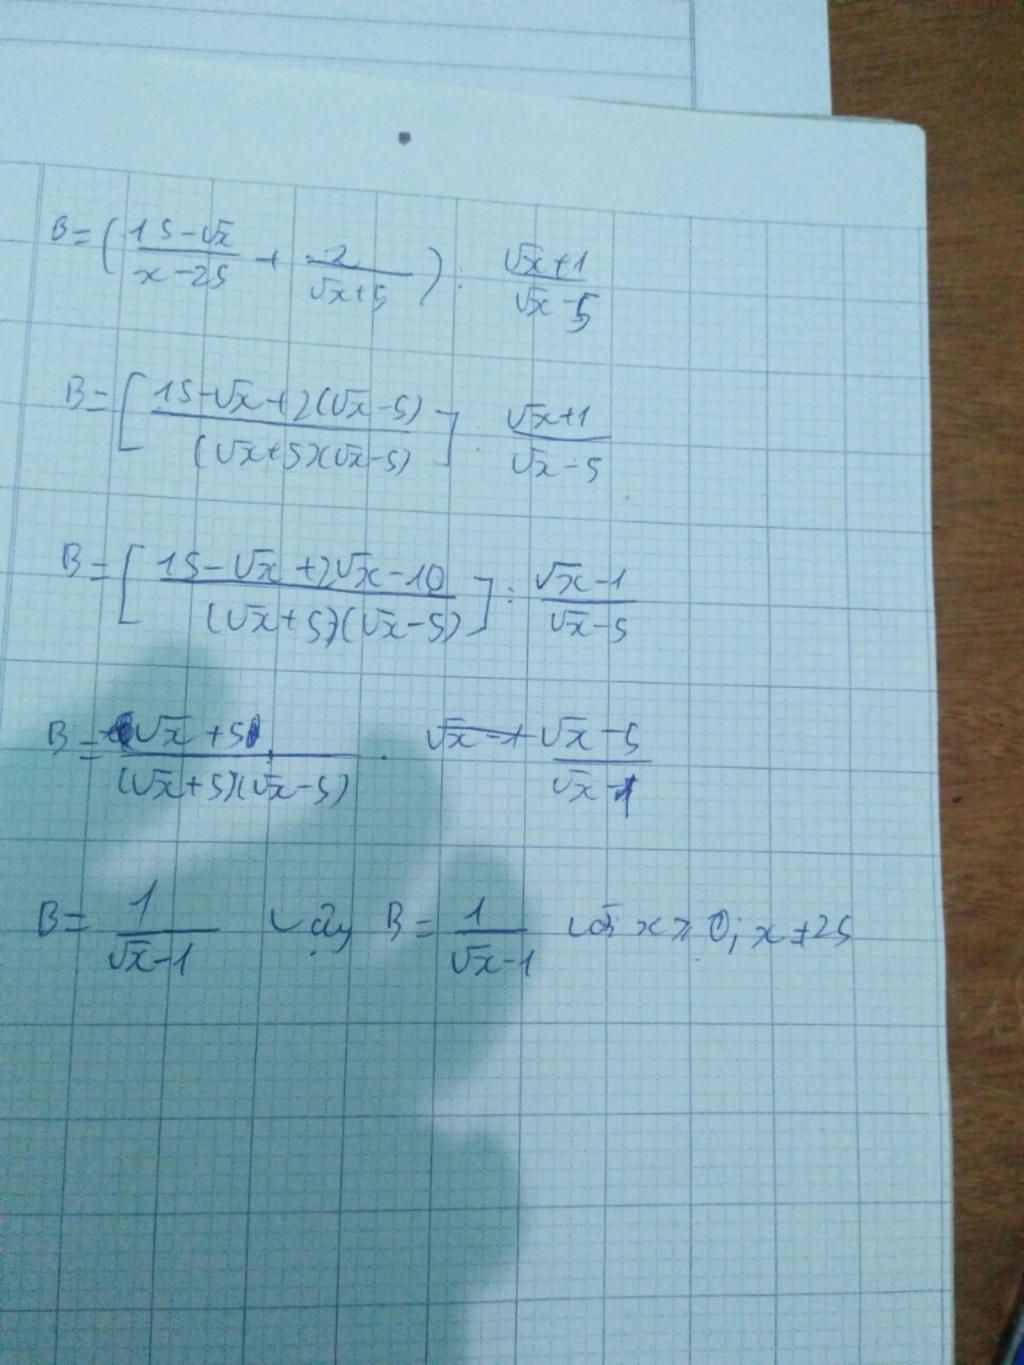 B = ( (15-√x)/(x-25) + 2/(√x+5) ) : (√x+1)/(√x-5)
B = [ (15-√x+2(√x-5))/((√x+5)(√x-5)) ] : (√x+1)/(√x-5)
B = [ (15-√x+2√x-10)/((√x+5)(√x-5)) ] : (√x-1)/(√x-5)
B = (√x+5)/((√x+5)(√x-5)) . (√x-5)/(√x-1)
B = 1/(√x-1) Vậy B = 1/(√x-1) với x ≥ 0; x ≠ 25